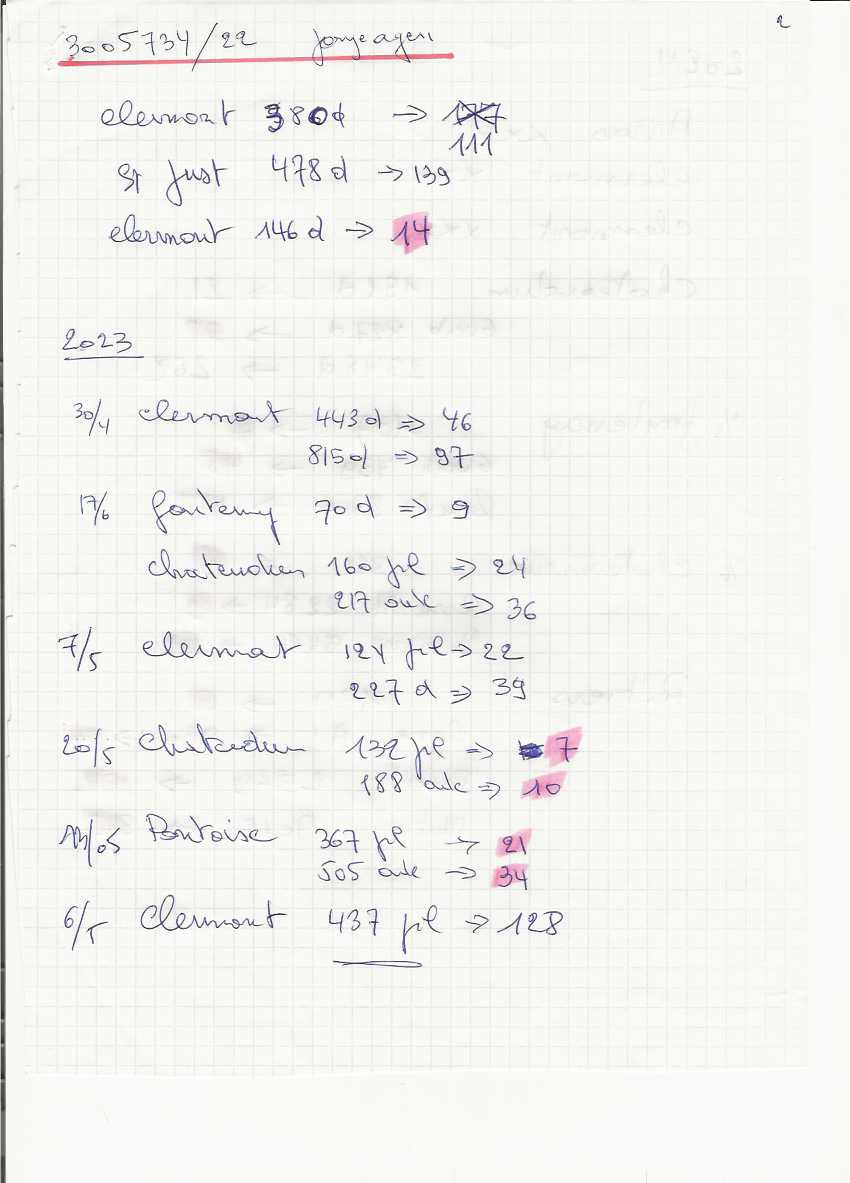 2
3005734/22
clermont 380d → 177
111
St Just 478 d → 139
clermont 146 d → 14
2023
30/4 clermont 443d => 46
815d => 97
17/6 fontenoy 70 d => 9
chateaudun 160 pl => 24
217 duc => 36
7/5 clermont 124 pl => 22
227 d => 39
20/5 Chateaudun 132 pl => 7
188 duc => 10
13/05 Pontoise 367 pl → 21
505 duc → 34
6/5 Clermont 437 pl → 128